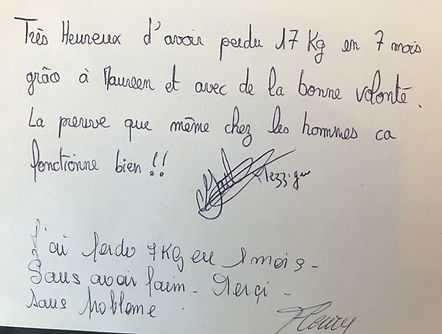 Très Heureux d'avoir perdu 17 Kg en 7 mois
grâce à Maureen et avec de la bonne volonté.
La preuve que même chez les hommes ca
fonctionne bien !!
J'ai perdu 7KG en 1 mois -
Sans avoir faim - Merci -
Sans problème
Fleury